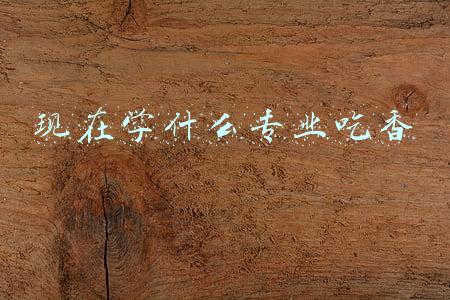 现在学什么专业吃香